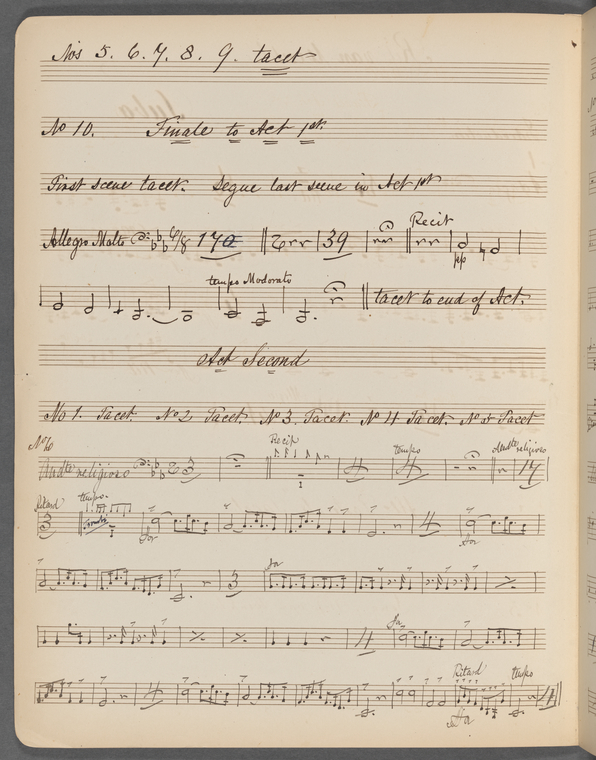 Nos 5. 6. 7. 8. 9. tacet
No 10. Finale to Act 1st.
First scene tacet. Segue last scene in Act 1st
Recit
Allegro Molto 6/8 170 2 39
pp
tempo Moderato
tacet to end of Act.
Act Second
No 1. Tacet. No 2 Tacet. No 3. Tacet. No 4 Tacet. No 5 Tacet
No 6
Recit tempo religioso
Andte religioso 3 4 4 17
Ritard tempo.
3 4
3
4
Ritard tempo
4 4